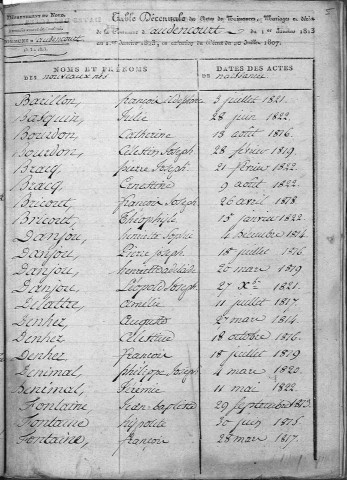 DÉPARTEMENT DU NORD.
Table Décennale des Actes de Naissances, Mariages et Décès
de la Commune d'audencourt du 1er Janvier 1813
au 1er Janvier 1823, en exécution du Décret du 20 Juillet 1807.
NOMS ET PRÉNOMS DES nouveaux nés
DATES DES ACTES DE naissance
Barillon, françois 3 juillet 1821.
Basquin, Julie 28 juin 1822.
Bourdon, Catherine 18 août 1816.
Bourdon, Celestin Joseph 28 février 1819.
Bracq, pierre Joseph 21 février 1822.
Bracq, Ernestine 9 août 1822.
Bricout, françois Joseph 26 avril 1818.
Bricout, Théophile 15 janvier 1822.
Danjou, Sophie 4 Décembre 1814.
Danjou, Pierre Joseph 18 juillet 1816.
Danjou, henriette adélaide 26 mars 1819
Danjou, Léopold Joseph 27 Xbre 1821.
Delattre, amélie 11 juillet 1817.
Denhez, auguste 2 mars 1814.
Denhez Celestine 18 octobre 1816.
Denhez françois 18 juillet 1819
Denimal, philippe Joseph 4 mars 1820.
Denimal, Jérémie 11 mai 1822.
Fontaine, Jean baptiste 29 Septembre 1813.
Fontaine hypolite 30 juin 1815
Fontaine, françois 28 mars 1817.